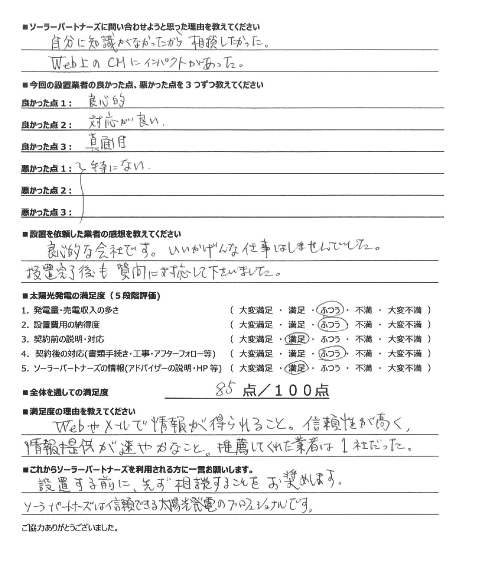 ■ソーラーパートナーズに問い合わせようと思った理由を教えてください
自分に知識がなかったから 相談したかった。
Web上のCMにインパクトがあった。
■今回の設置業者の良かった点、悪かった点を3つずつ教えてください
良かった点1： 良心的
良かった点2： 対応が良い.
良かった点3： 真面目
悪かった点1： 特にない.
悪かった点2：
悪かった点3：
■設置を依頼した業者の感想を教えてください
良心的な会社です。いいかげんな仕事はしませんでした。
設置完了後も 質問に対応して下さいました。
■太陽光発電の満足度（5段階評価）
1. 発電量・売電収入の多さ （ 大変満足 ・ 満足 ・ ふつう ・ 不満 ・ 大変不満 ）
2. 設置費用の納得度 （ 大変満足 ・ 満足 ・ ふつう ・ 不満 ・ 大変不満 ）
3. 契約前の説明・対応 （ 大変満足 ・ 満足 ・ ふつう ・ 不満 ・ 大変不満 ）
4. 契約後の対応(書類手続き・工事・アフターフォロー等) （ 大変満足 ・ 満足 ・ ふつう ・ 不満 ・ 大変不満 ）
5. ソーラーパートナーズの情報(アドバイザーの説明・HP 等) （ 大変満足 ・ 満足 ・ ふつう ・ 不満 ・ 大変不満 ）
■全体を通しての満足度 85 点／100点
■満足度の理由を教えてください
Webやメールで情報が得られること。信頼性が高く、
情報提供が速やかなこと。推薦してくれた業者は1社だった。
■これからソーラーパートナーズを利用される方に一言お願いします。
設置する前に、先ず相談することをお奨めします。
ソーラーパートナーズは信頼できる太陽光発電のプロフェショナルです。
ご協力ありがとうございました。